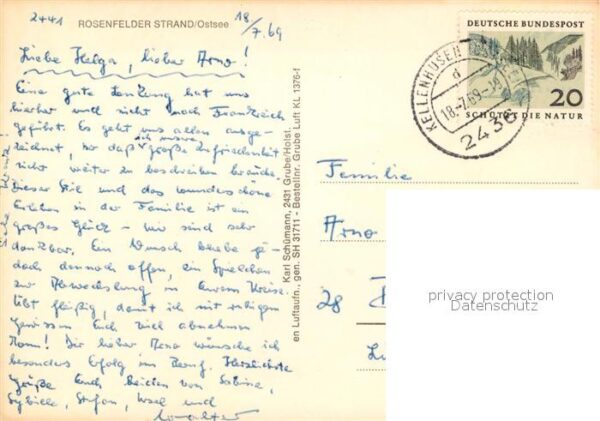 2441 ROSENFELDER STRAND/Ostsee 18/7.69
Liebe Helga, lieber Arno!
Eine gute Lenkung hat uns
hierher und nicht nach Frankreich
geführt. Es geht uns allen ausge-
zeichnet, so daß ich unsere große Zufriedenheit
nicht weiter zu beschreiben brauche.
Dieser Stil und das wunderschöne
Erleben in der Familie ist ein
großes Glück - wir sind sehr
dankbar. Ein Wunsch bliebe je-
doch dennoch offen, ein Spielchen
zur Abwechslung in Eurem Kreise.
Übt fleißig, damit ich mit ruhigem
Gewissen Euch viel abnehmen
kann! Dir lieber Arno wünsche ich
besonders Erfolg im Beruf. Herzlichste
Grüße Euch beiden von Sabine,
Sybille, Stefan, und
Walter
Karl Schümann, 2431 Grube/Holst.
en Luftaufn., gen. SH 31711 - Bestellnr. Grube Luft KL 1376-1
DEUTSCHE BUNDESPOST
20
SCHÜTZT DIE NATUR
KELLENHUSEN
d
18.-7.69-
2436
Familie
Arno
28
privacy protection
Datenschutz